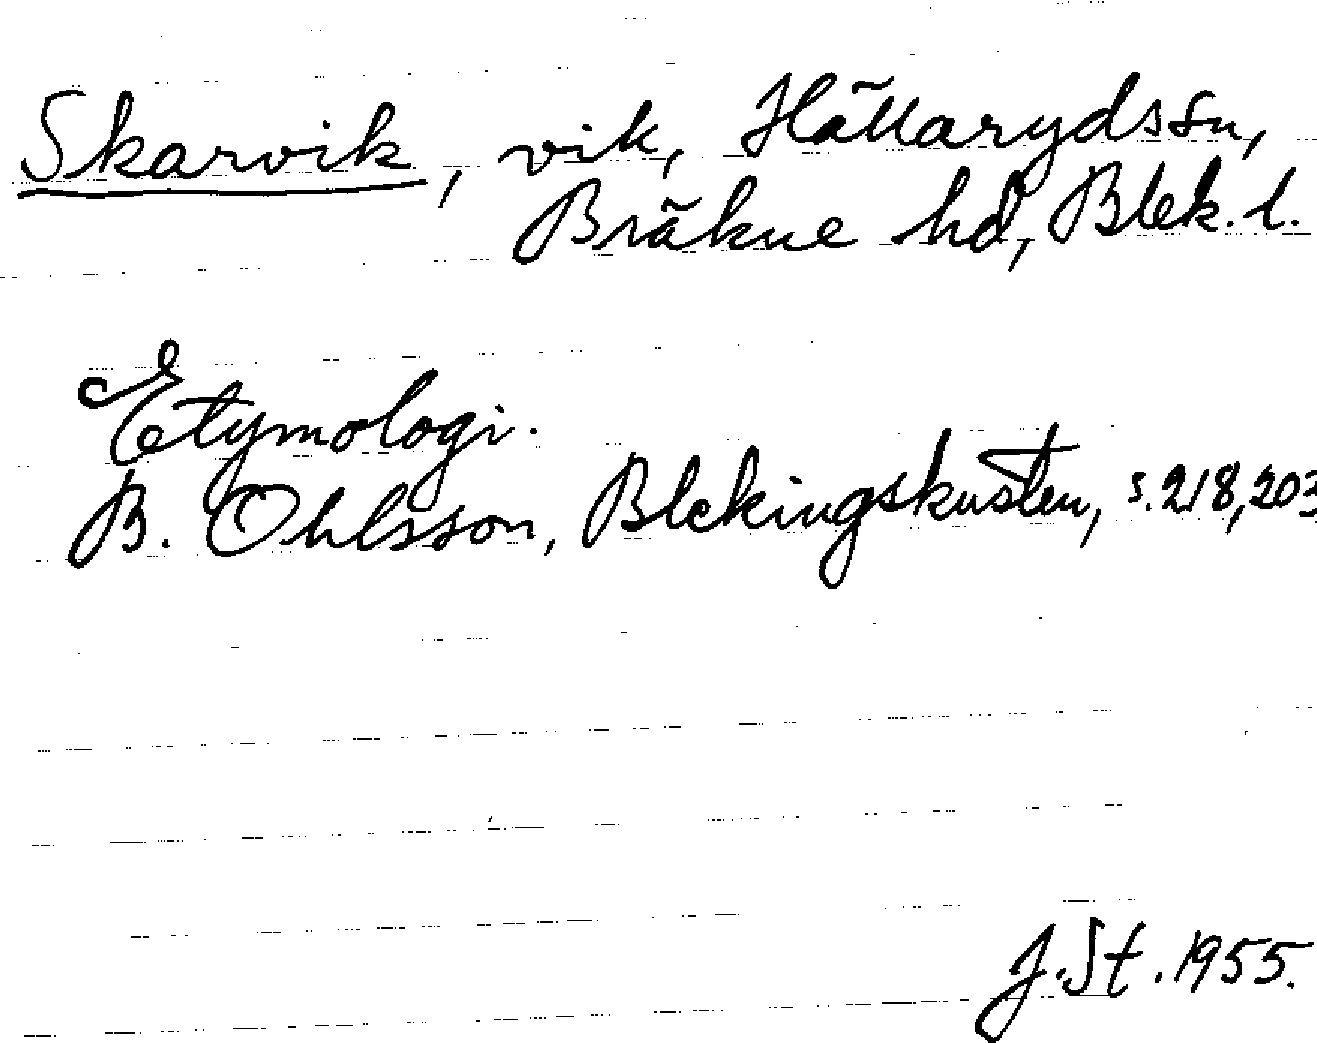 Skarvik, vik, Hällaryds sn,
Bräkne hd, Blek. l.
Etymologi.
B. Ohlsson, Blekingskusten, s. 218, 203
J. St. 1955.